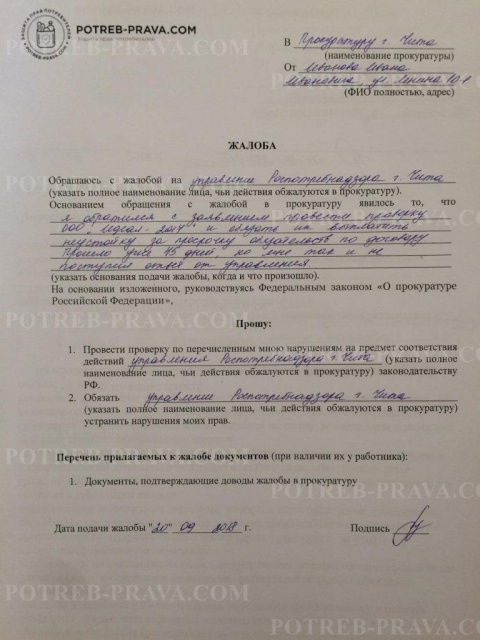 ЗАЩИТА ПРАВ ПОТРЕБИТЕЛЕЙ
POTREB-PRAVA.COM
ЗАЩИТА ПРАВ ПОТРЕБИТЕЛЕЙ
POTREB-PRAVA.COM
В Прокуратуру г. Чита
(наименование прокуратуры)
От Иванова Ивана
Ивановича, ул. Ленина 10-1
(ФИО полностью, адрес)
ЖАЛОБА
Обращаюсь с жалобой на управление Роспотребнадзора г. Чита
(указать полное наименование лица, чьи действия обжалуются в прокуратуру).
POTREB-PRAVA.COM
Основанием обращения с жалобой в прокуратуру явилось то, что
я обратился с заявлением провести проверку
ООО и обязать их выплатить
неустойку за просрочку обязательств по договору
Прошло уже 45 дней, но мне так и не
поступил ответ от управления
(указать основания подачи жалобы, когда и что произошло).
На основании изложенного, руководствуясь Федеральным законом «О прокуратуре
Российской Федерации»,
POTREB-PRAVA.COM
Прошу:
1. Провести проверку по перечисленным мною нарушениям на предмет соответствия
действий управления Роспотребнадзора г. Чита (указать полное
наименование лица, чьи действия обжалуются в прокуратуру) законодательству
РФ.
2. Обязать управление Роспотребнадзора г. Чита
(указать полное наименование лица, чьи действия обжалуются в прокуратуру)
устранить нарушения моих прав.
POTREB-PRAVA.COM
Перечень прилагаемых к жалобе документов (при наличии их у работника):
1. Документы, подтверждающие доводы жалобы в прокуратуру
POTREB-PRAVA.COM
Дата подачи жалобы "20" 09 2018 г. Подпись
POTREB-PRAVA.COM